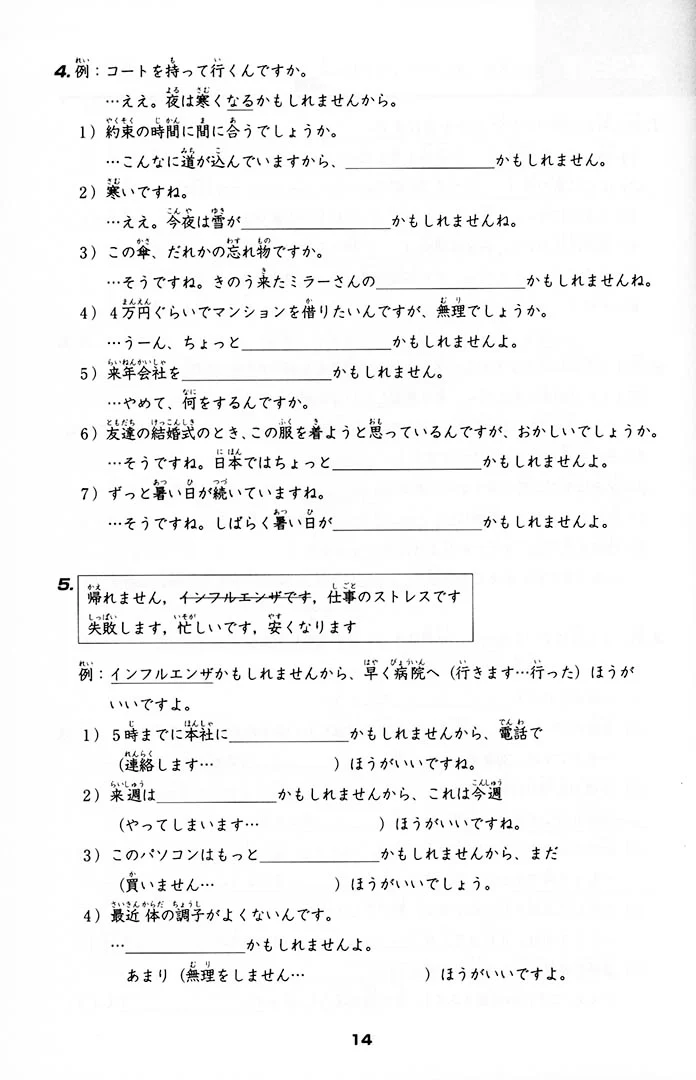 4. 例：コートを持って行くんですか。
…ええ。夜は寒くなるかもしれませんから。
1）約束の時間に間に合うでしょうか。
…こんなに道が込んでいますから、＿＿＿＿＿＿＿＿かもしれません。
2）寒いですね。
…ええ。今夜は雪が＿＿＿＿＿＿＿＿かもしれませんね。
3）この傘、だれかの忘れ物ですか。
…そうですね。きのう来たミラーさんの＿＿＿＿＿＿＿＿かもしれませんね。
4）4万円ぐらいでマンションを借りたいんですが、無理でしょうか。
…うーん、ちょっと＿＿＿＿＿＿＿＿かもしれませんよ。
5）来年会社を＿＿＿＿＿＿＿＿かもしれません。
…やめて、何をするんですか。
6）友達の結婚式のとき、この服を着ようと思っているんですが、おかしいでしょうか。
…そうですね。日本ではちょっと＿＿＿＿＿＿＿＿かもしれませんよ。
7）ずっと暑い日が続いていますね。
…そうですね。しばらく暑い日が＿＿＿＿＿＿＿＿かもしれませんよ。
5. 帰れません，インフルエンザです，仕事のストレスです
失敗します，忙しいです，安くなります
例：インフルエンザかもしれませんから、早く病院へ（行きます…行った）ほうが
いいですよ。
1）5時までに本社に＿＿＿＿＿＿かもしれませんから、電話で
（連絡します…　　　　　　）ほうがいいですね。
2）来週は＿＿＿＿＿＿かもしれませんから、これは今週
（やってしまいます…　　　　　　）ほうがいいですね。
3）このパソコンはもっと＿＿＿＿＿＿かもしれませんから、まだ
（買いません…　　　　　　）ほうがいいでしょう。
4）最近体の調子がよくないんです。
…＿＿＿＿＿＿かもしれませんよ。
あまり（無理をしません…　　　　　　）ほうがいいですよ。
14